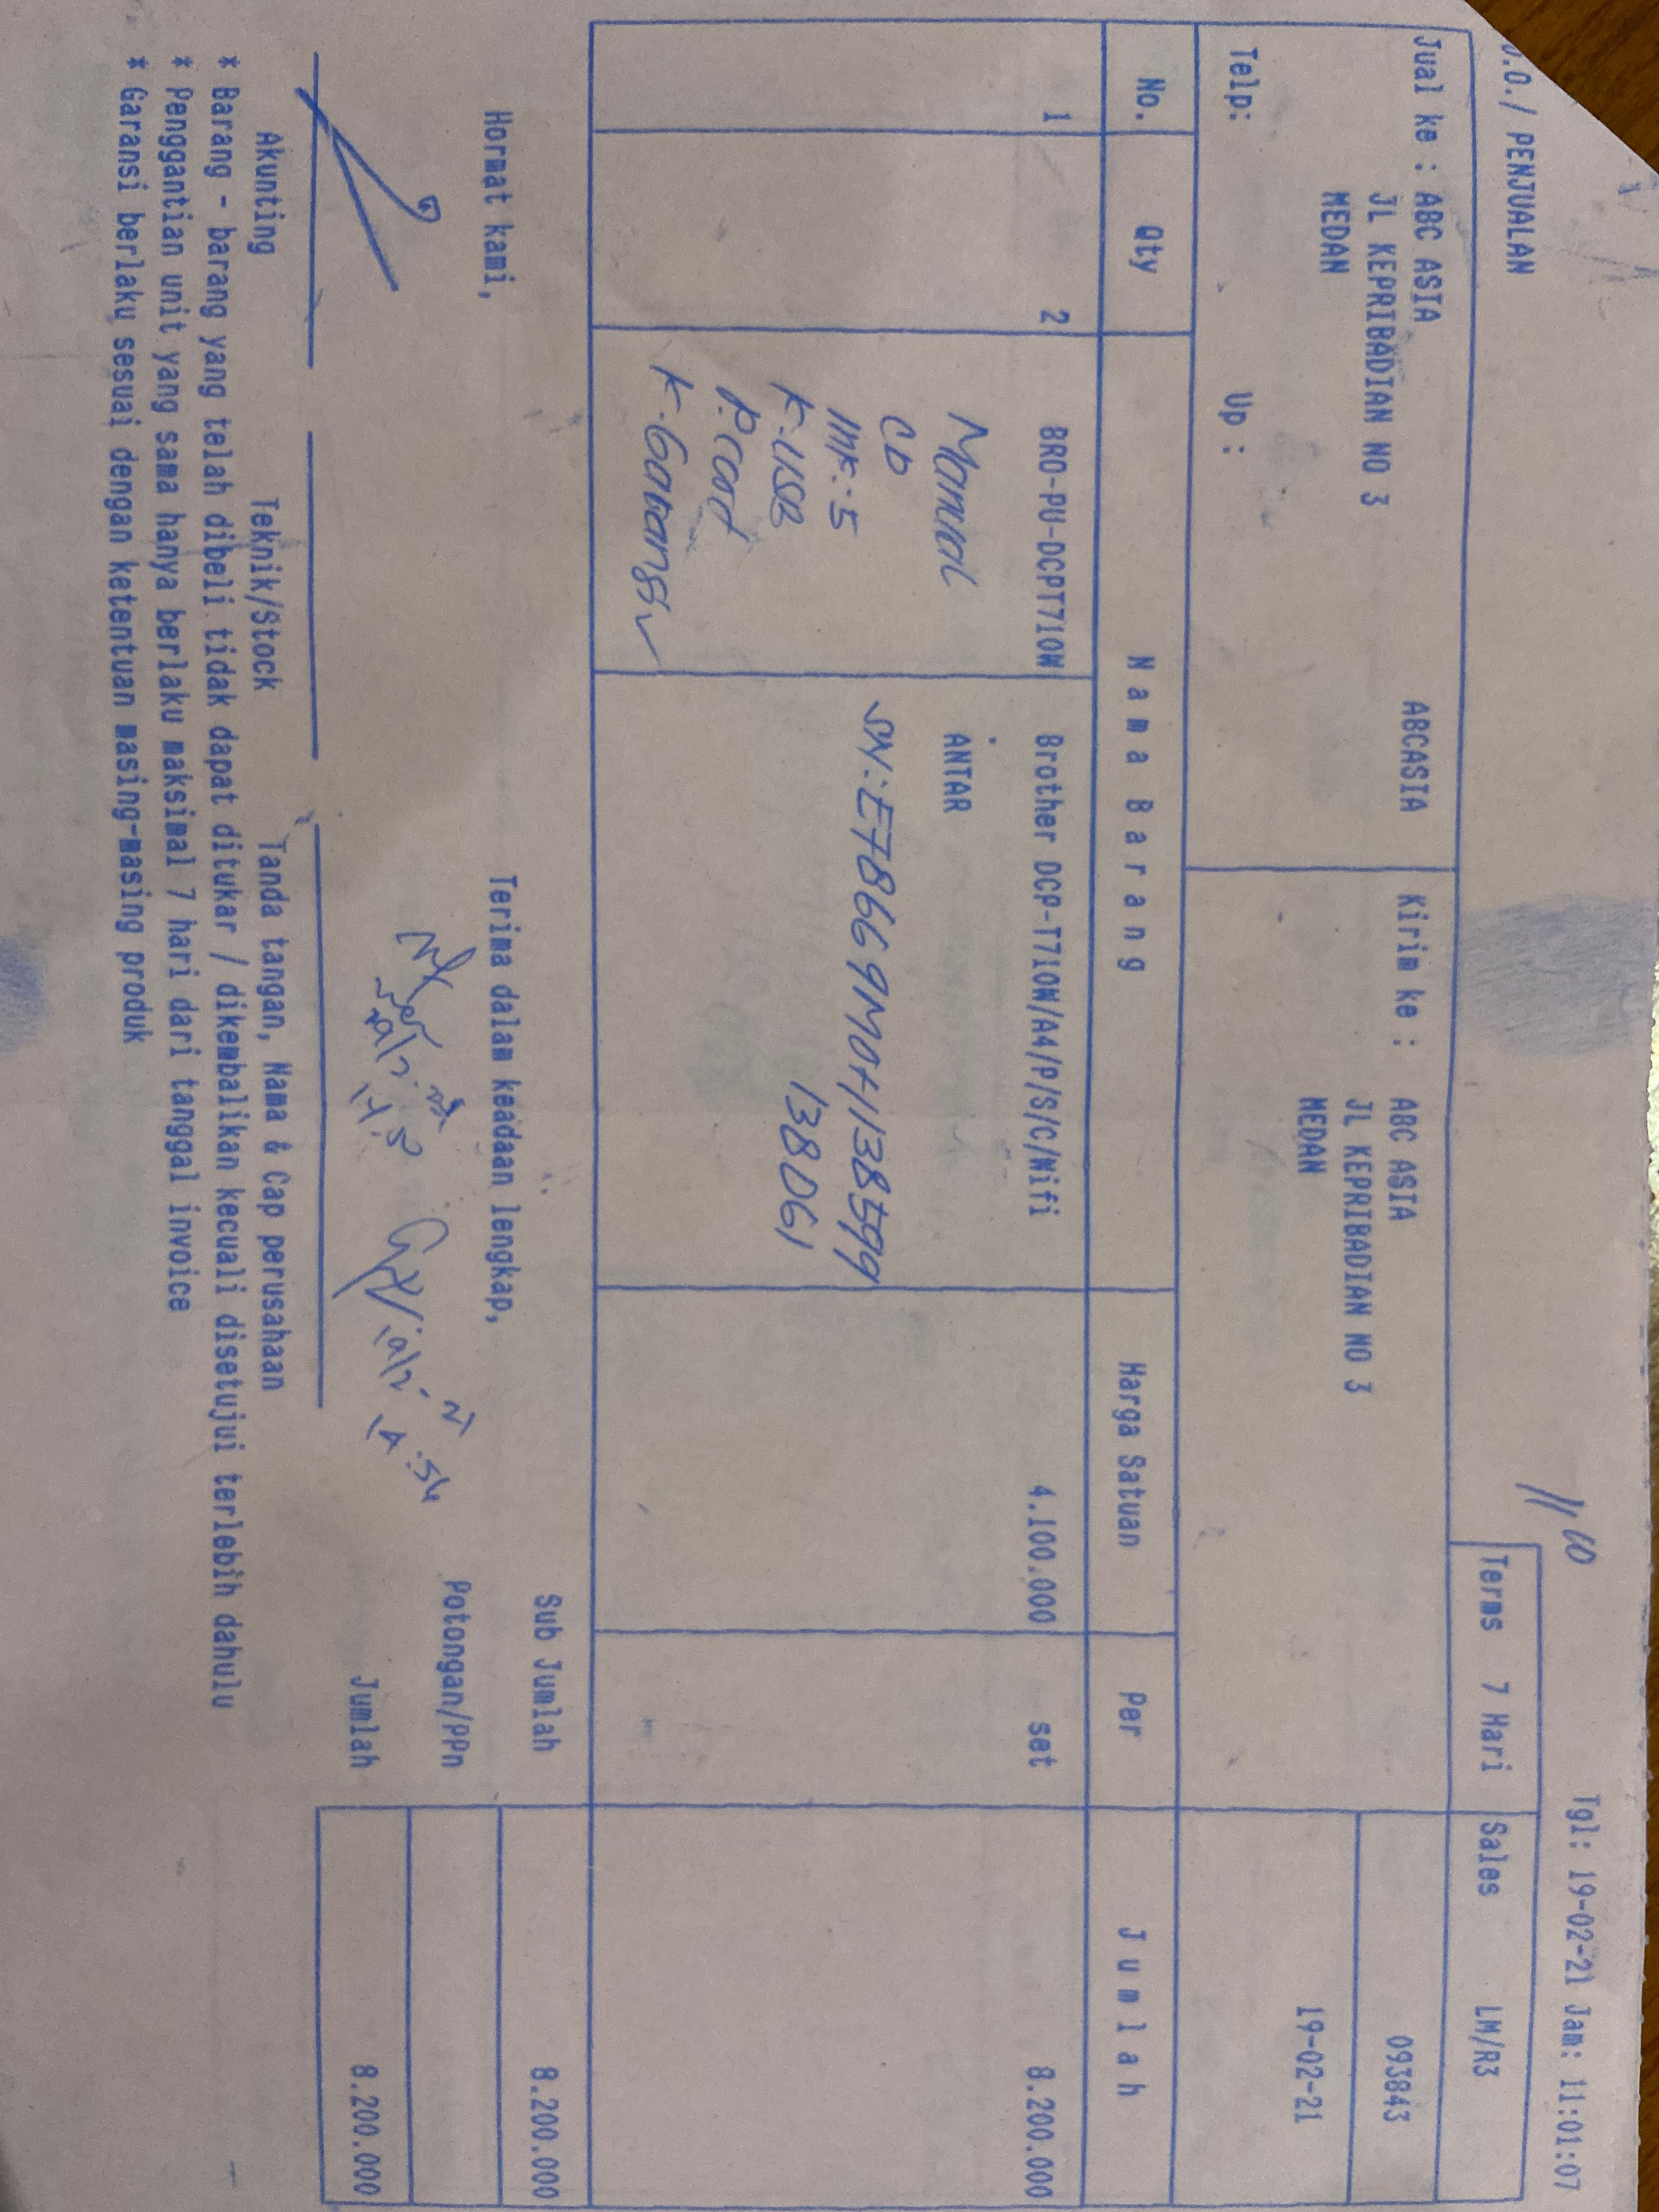 PENJUALAN
11,10
Tgl: 19-02-21 Jam: 11:01:07
Terms 7 Hari Sales LM/R3
Jual ke : ABC ASIA ABCASIA
JL KEPRIBADIAN NO 3
MEDAN
Telp: Up :
Kirim ke : ABC ASIA
JL KEPRIBADIAN NO 3
MEDAN
093843
19-02-21
No. Qty Nama Barang Harga Satuan Per Jumlah
1 2 BRO-PU-DCPT710W Brother DCP-T710W/A4/P/S/C/Wifi 4.100.000 set 8.200.000
ANTAR
Manual
CD
Ink: 5
K.USB
P.cord
K.Garansi
SN: E78669M0H138599
138061
Hormat kami,
Terima dalam keadaan lengkap,
Sub Jumlah 8.200.000
Potongan/PPn
Jumlah 8.200.000
Akunting Teknik/Stock Tanda tangan, Nama & Cap perusahaan
* Barang - barang yang telah dibeli tidak dapat ditukar / dikembalikan kecuali disetujui terlebih dahulu
* Penggantian unit yang sama hanya berlaku maksimal 7 hari dari tanggal invoice
* Garansi berlaku sesuai dengan ketentuan masing-masing produk